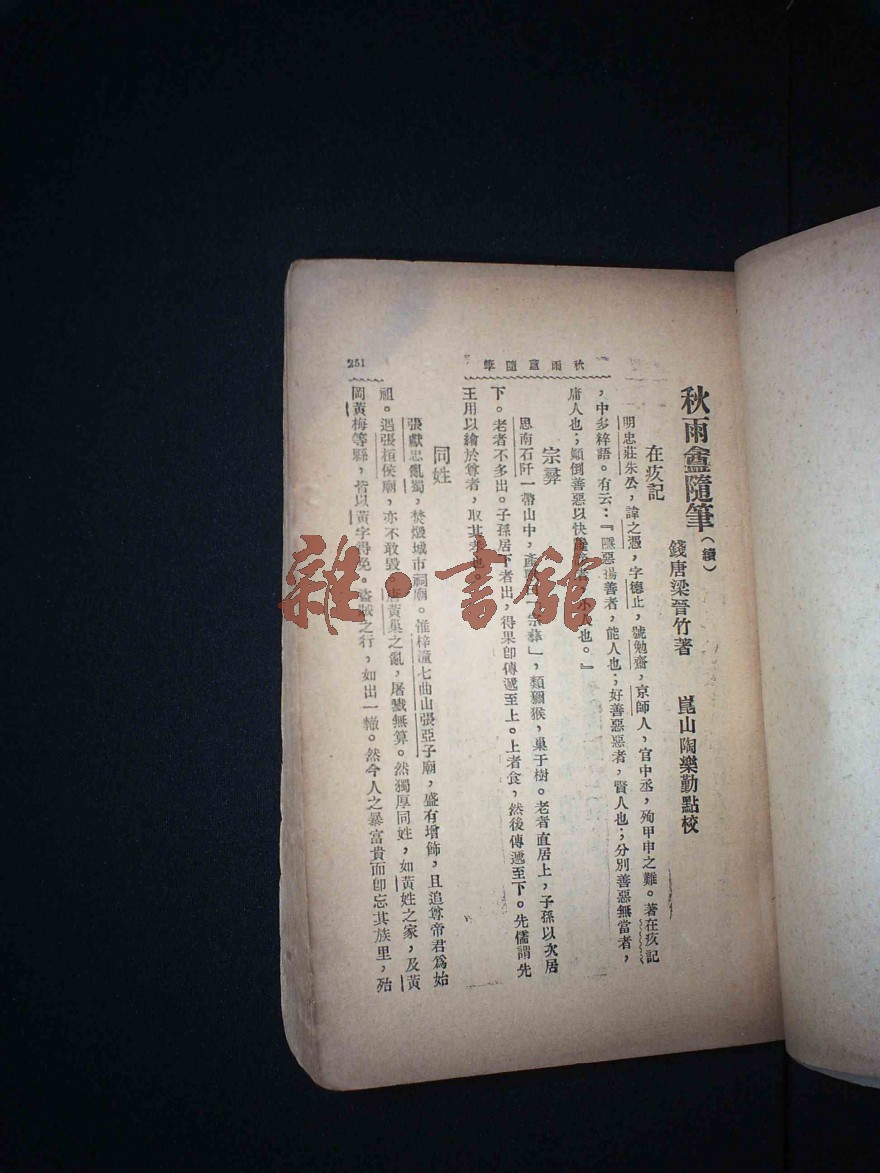 秋雨盦隨筆（續）
錢唐梁晉竹著 崑山陶樂勤點校
在疚記
明忠莊朱公，諱之馮，字德止，號勉齋，京師人，官中丞，殉甲申之難。著在疚記
，中多粹語。有云：『隱惡揚善者，能人也；好善惡惡者，賢人也；分別善惡無當者，
庸人也；顛倒善惡以快
人也。』
宗彛
思南石阡一帶山中，產
宗彝」，類獼猴，巢于樹。老者直居上，子孫以次居
下。老者不多出。子孫居下者出，得果卽傳遞至上。上者食，然後傳遞至下。先儒謂先
王用以繪於尊者，取其孝也。
同姓
張獻忠亂蜀，焚燬城市祠廟。惟梓潼七曲山張亞子廟，盛有增飾，且追尊帝君爲始
祖。遇張桓侯廟，亦不敢毀。唐黃巢之亂，屠戮無算。然獨厚同姓，如黃姓之家，及黃
岡黃梅等縣，皆以黃字得免。盜賊之行，如出一轍。然今人之暴富貴而卽忘其族里，殆
秋雨盦隨筆
251
雜·書館